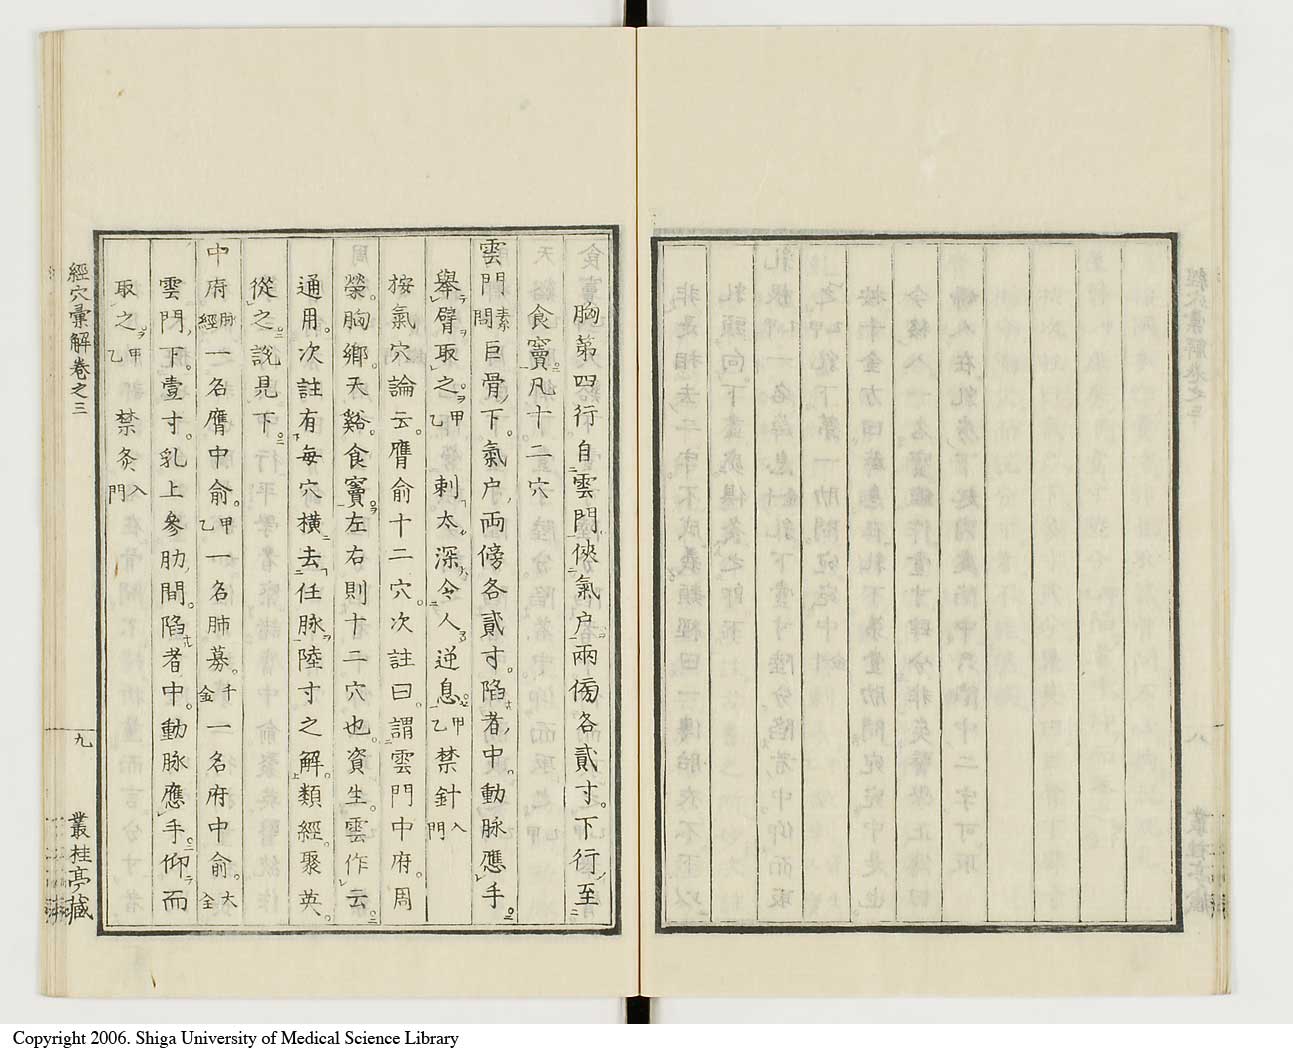 胸第四行自雲門俠氣户兩傍各貳寸下行至
食竇凡十二穴
雲門素問巨骨下氣户兩傍各貳寸陷者中動脉應手
舉臂取之甲乙刺太深令人逆息甲乙禁針入門
按氣穴論云膺俞十二穴次註曰謂雲門中府周
榮胸鄉天谿食竇左右則十二穴也資生雲作云
通用次註有每穴橫去任脉陸寸之解類經聚英
從之説見下
中府脉經一名膺中俞甲乙一名肺募千金一名府中俞大全
雲門下壹寸乳上參肋間陷者中動脉應手仰而
取之甲乙禁灸入門
經穴彙解卷之三
九
叢桂亭藏
Copyright 2006. Shiga University of Medical Science Library